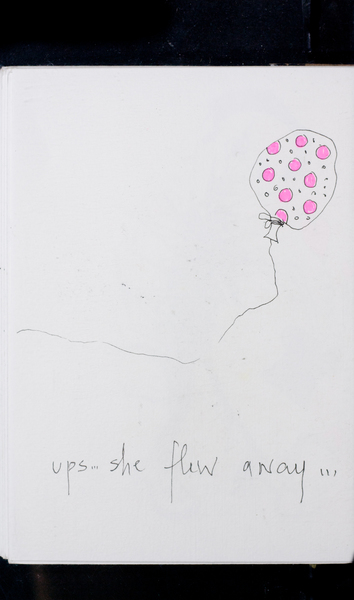 ups... she flew away...